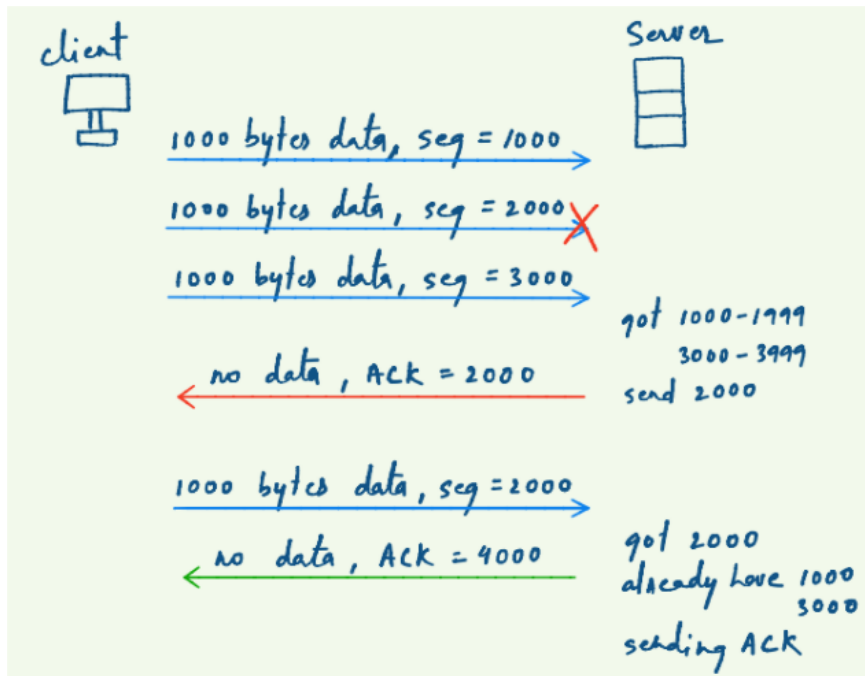 client
Server
1000 bytes data, seq = 1000
1000 bytes data, seq = 2000
1000 bytes data, seq = 3000
got 1000-1999
3000-3999
send 2000
no data, ACK = 2000
1000 bytes data, seq = 2000
no data, ACK = 4000
got 2000
already have 1000
3000
sending ACK